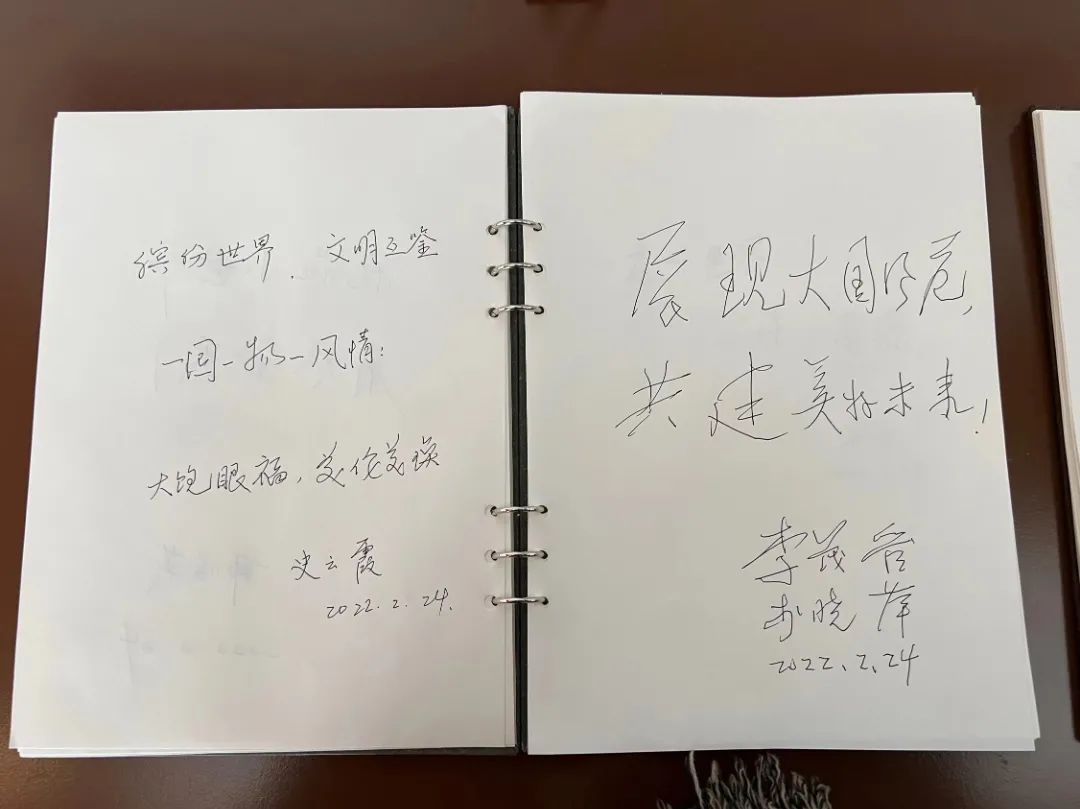 缤纷世界、文明互鉴
一国一物一风情:
大饱眼福,美伦美焕
史云霞
2022.2.24.
展现大国风范,
共建美好未来!
李茂
晓萍
2022.2.24